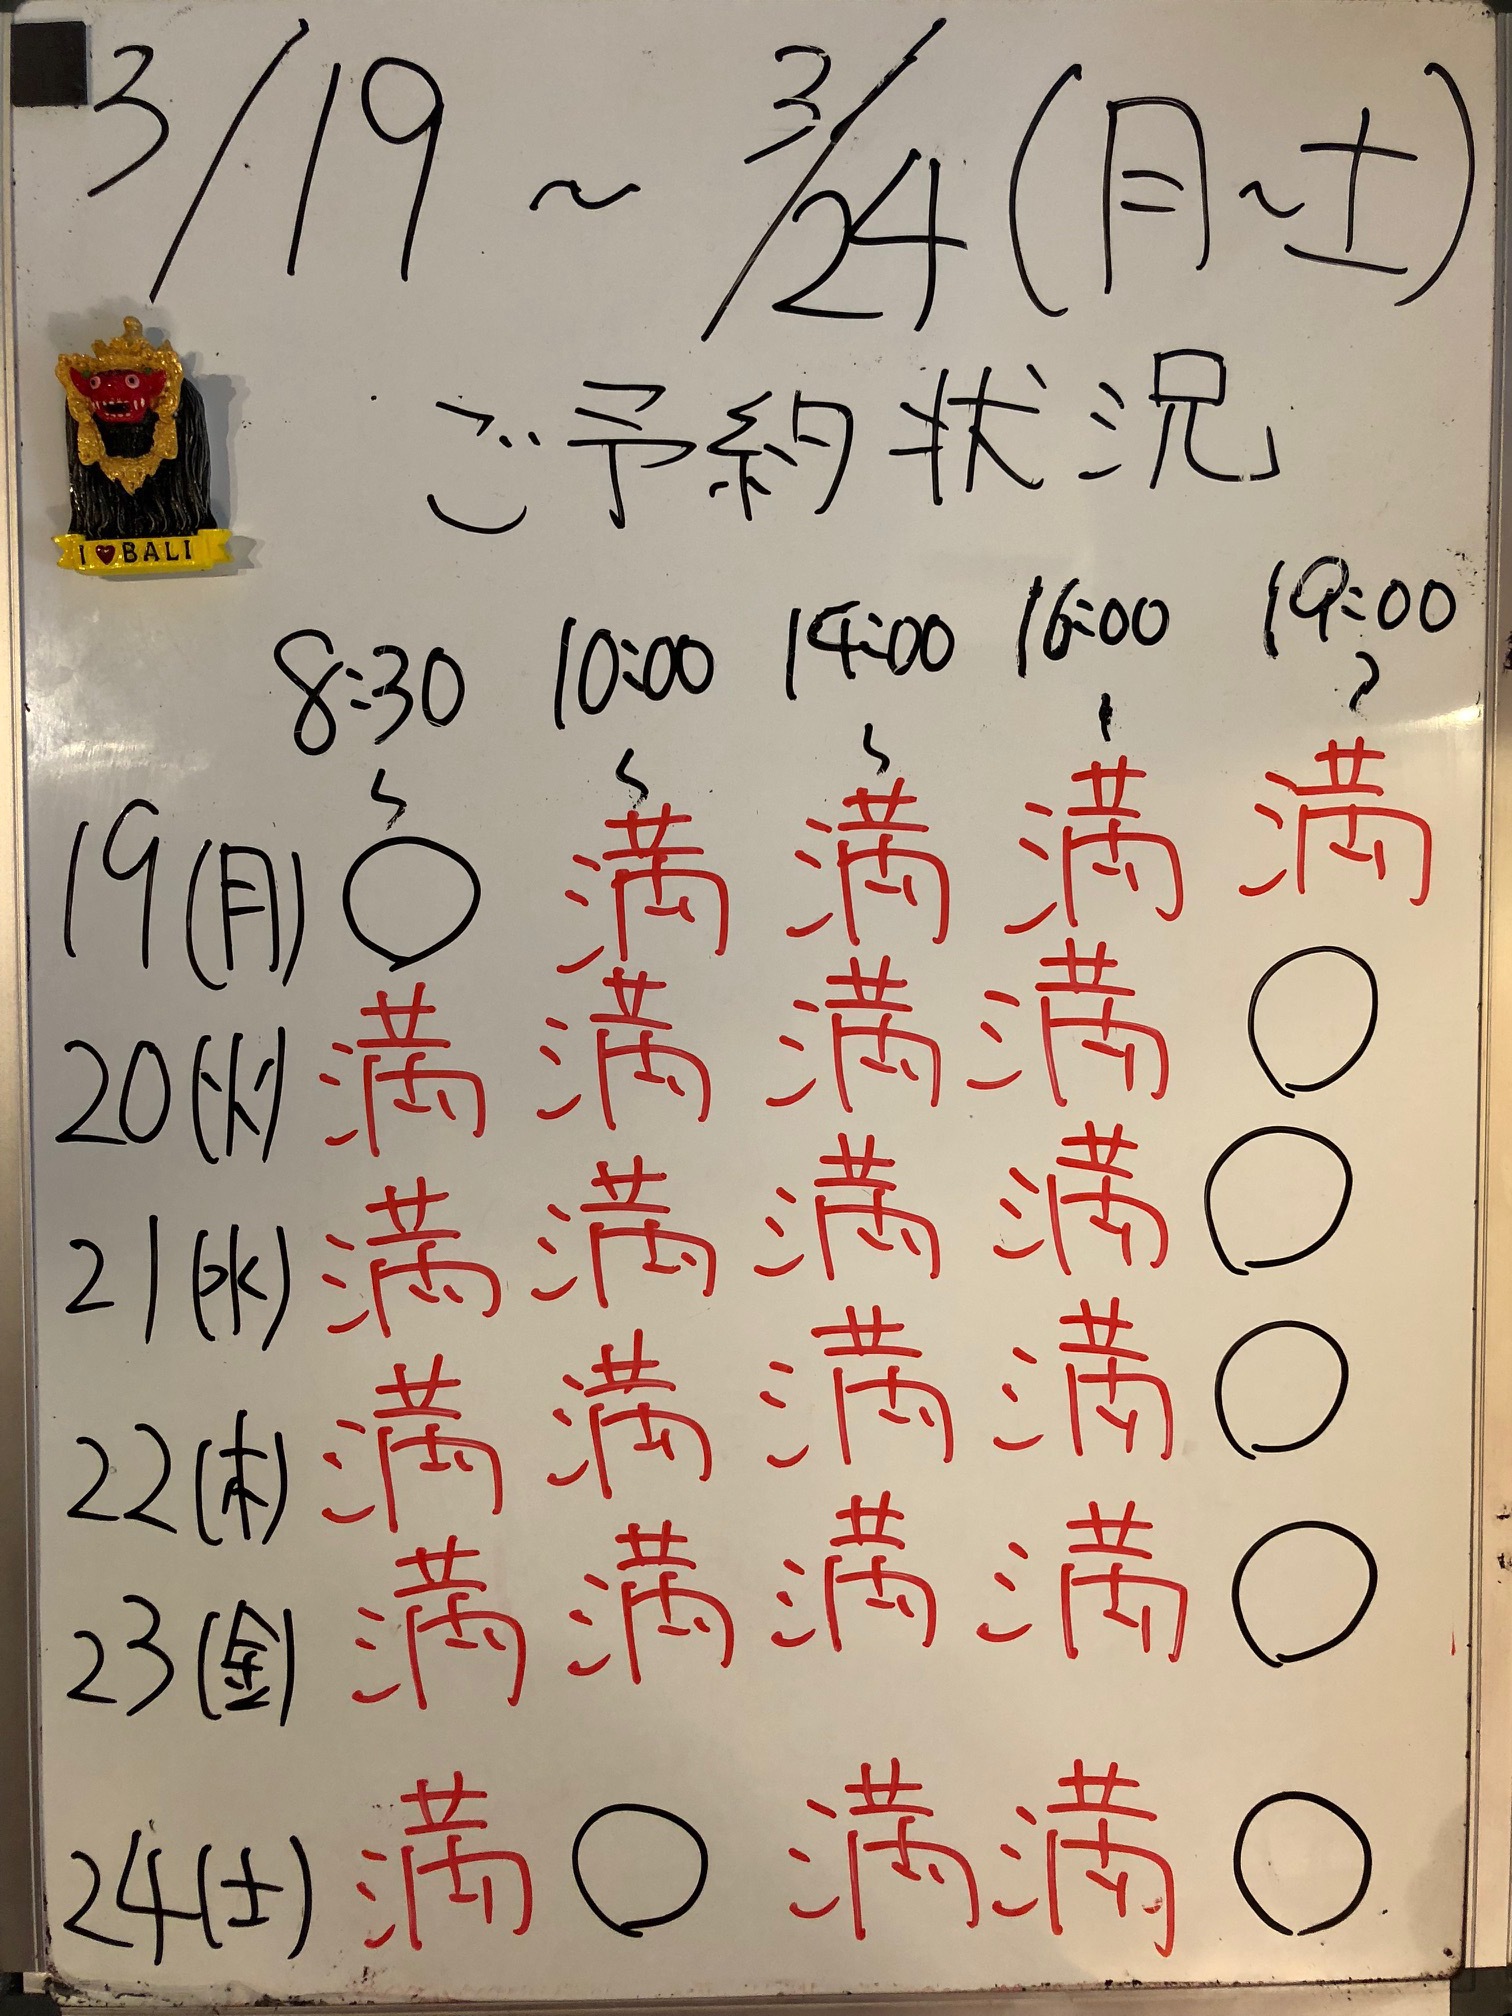 3/19 ~ 3/24 (月~土)
ご予約状況
I ♥ BALI
8:30~ 10:00~ 14:00~ 16:00~ 19:00~
19(月) ○ 満 満 満 満
20(火) 満 満 満 満 ○
21(水) 満 満 満 満 ○
22(木) 満 満 満 満 ○
23(金) 満 満 満 満 ○
24(土) 満 ○ 満 満 ○